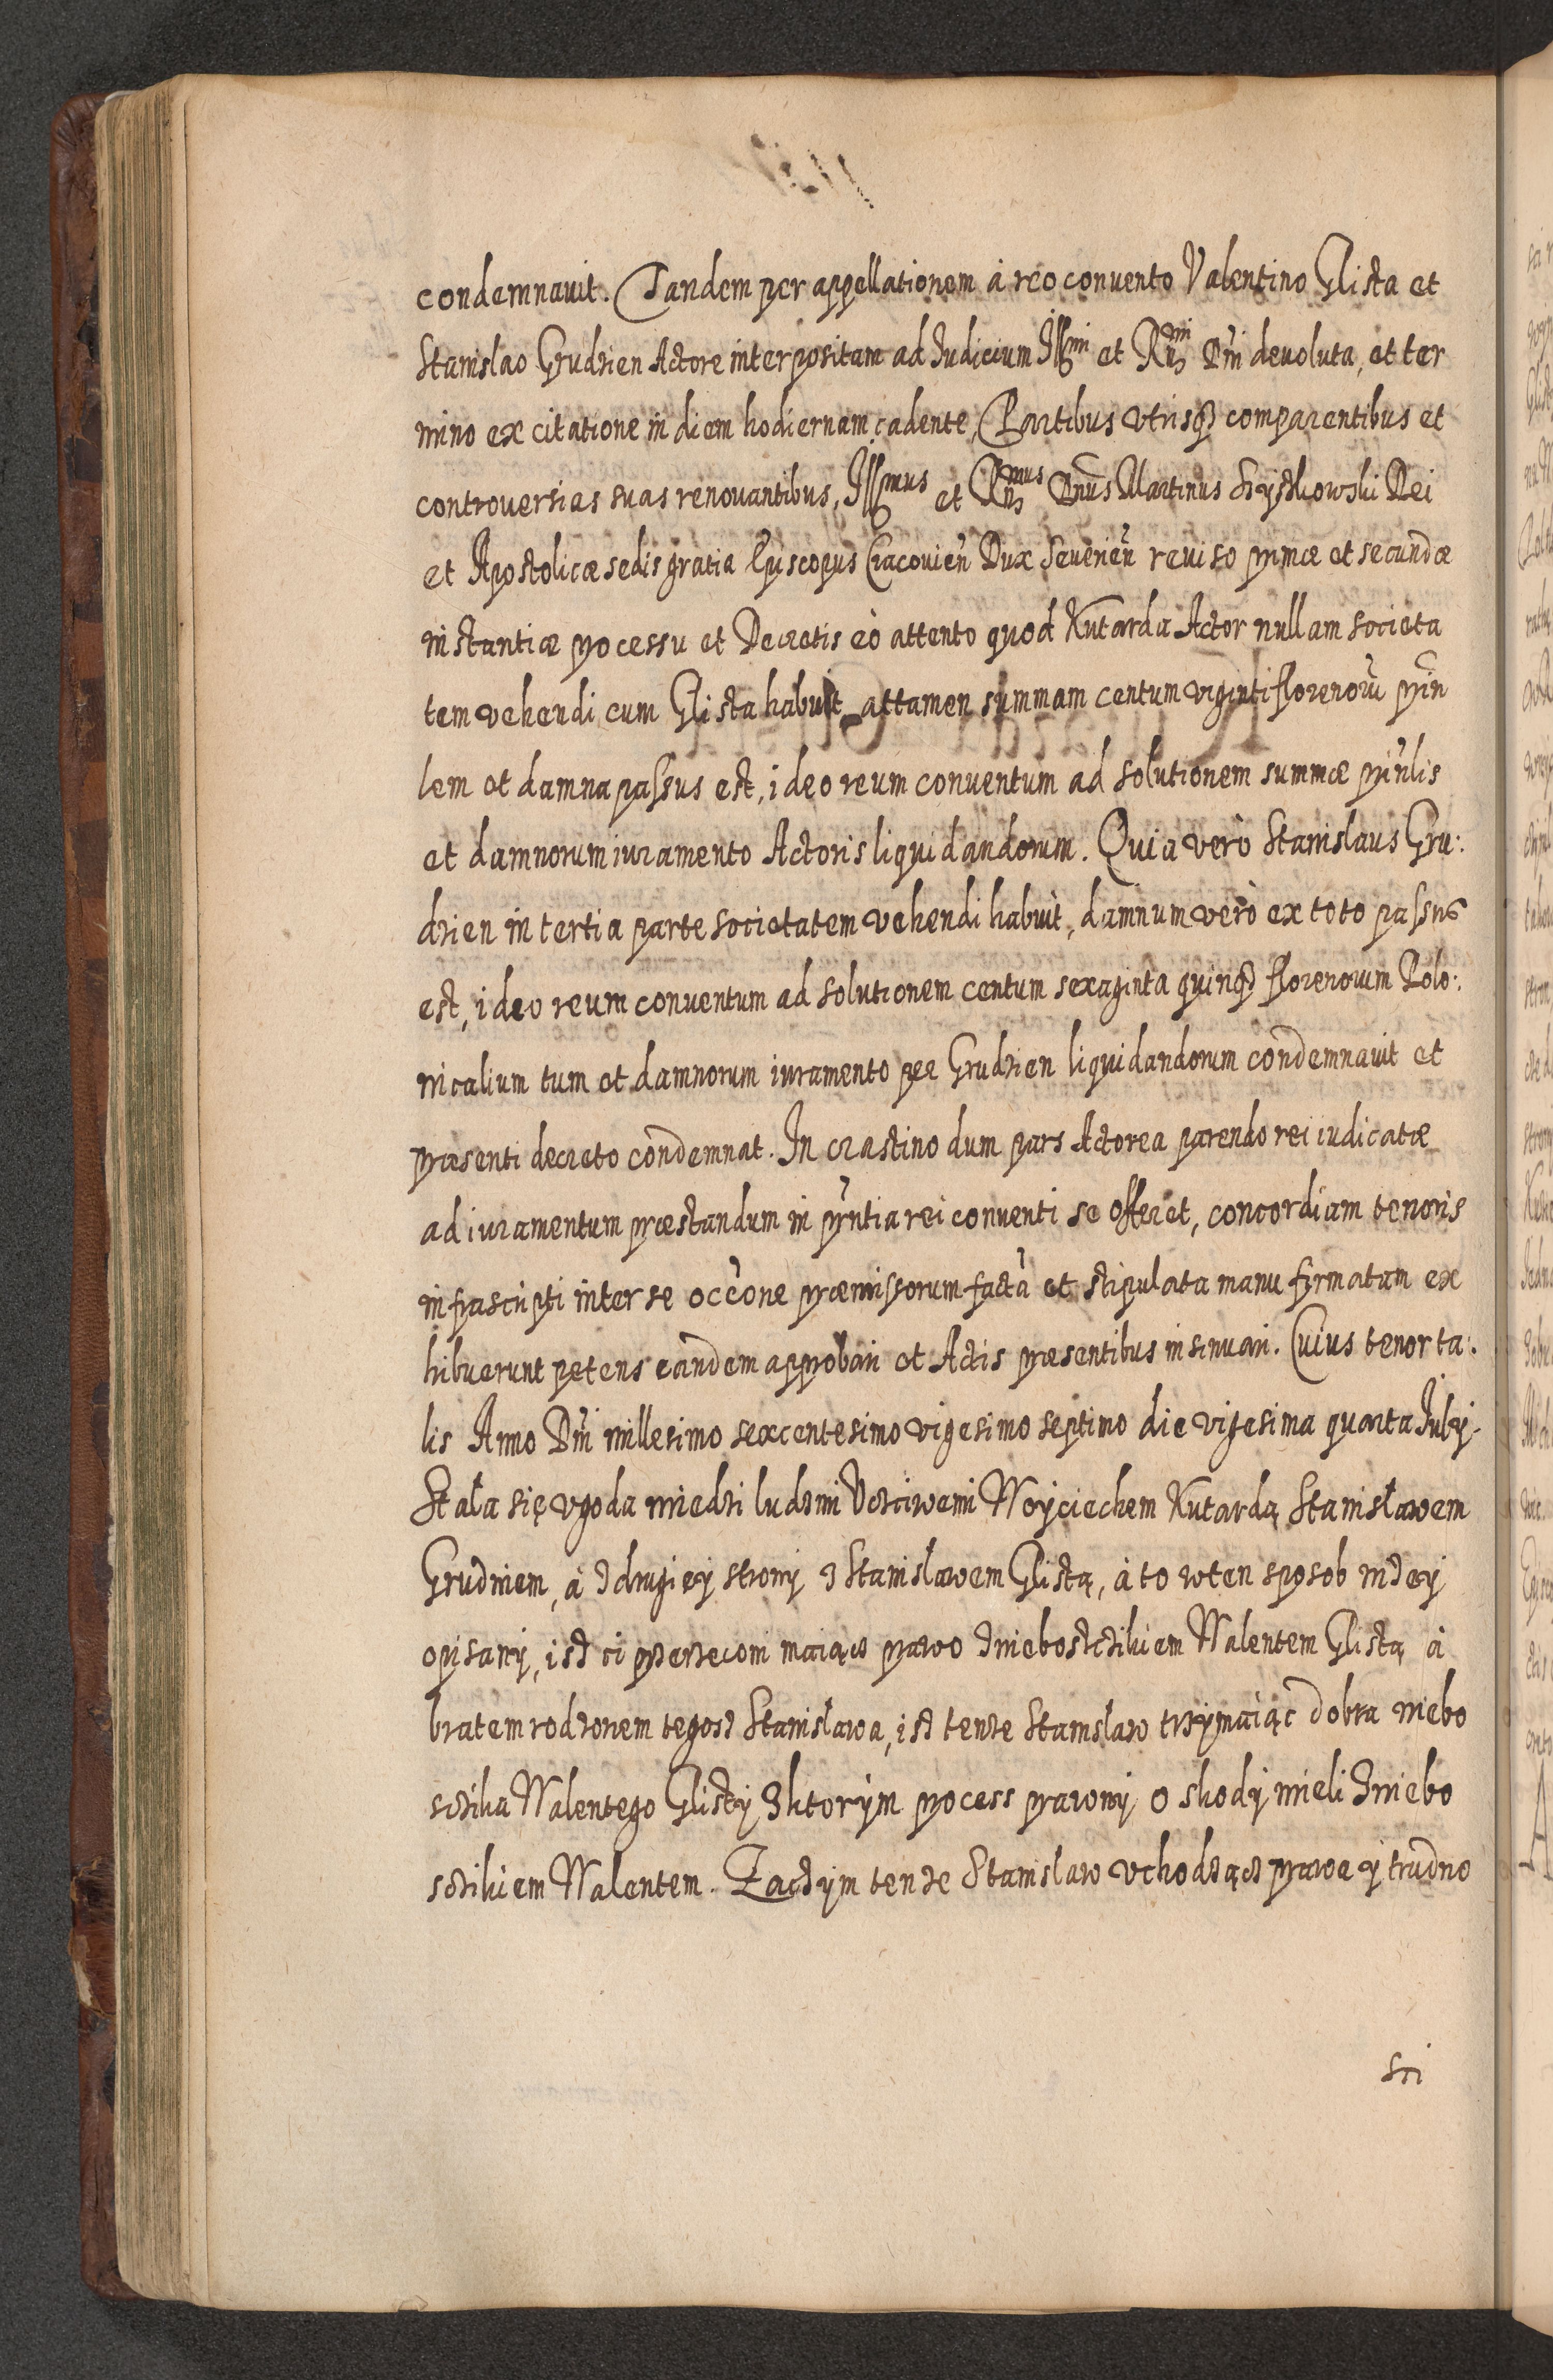 condemnauit. Tandem per appellationem à reo conuento Valentino Glista et
Stanislao Grudzien Actore interpositam ad Iudicium Illmi et Rmi Dni deuoluta, et ter
mino ex citatione in diem hodiernam cadente, Partibus vtrisq comparentibus et
controuersias suas renouantibus, Illmus et Rmus Dnus Martinus Szyszkowski Dei
et Apostolicæ sedis gratia Episcopus Cracouien Dux Seuerien reuiso primæ et secundæ
instantiæ processu et Decretis eò attento quod Kutarda Actor nullam societa
tem vehendi cum Glista habuit attamen summam centum viginti florenorũ prin
lem et damna passus est, ideo reum conuentum ad solutionem summæ prinlis
et damnorum iuramento Actoris liquidandorum. Quia verò Stanislaus Gru:
dzien in tertia parte societatem vehendi habuit, damnum verò ex toto passus
est, ideo reum conuentum ad solutionem centum sexaginta quinq florenorum Polo:
nicalium tum et damnorum iuramento per Grudzien liquidandorum condemnauit et
præsenti decreto condemnat. In crastino dum pars Actorea parendo rei iudicatæ
ad iuramentum præstandum in pñtia rei conuenti se offeret, concordiam tenoris
infrascripti inter se occone præmissorum factà et stipulata manu firmatam ex
hibuerunt petens eandem approbari et Actis præsentibus insinuari. Cuius tenor ta:
lis Anno Dni millesimo sexcentesimo vigesimo septimo die vigesima quarta Iulij.
Stała się vgoda miedzi ludzmi Vczciwemi Woyciechem Kutardą Stanisławem
Grudniem, à z drugiey strony z Stanisławem Glistą, à to wten sposob nizey
opisany, isz ci przerzeconi maiącz prawo z niebosczikiem Walentem Glistą à
bratem rodzonem tegosz Stanisława, isz tenze Stanislaw trzymaiąc dobra niebo
sczika Walentego Glisty z ktorym process prawny o skody mieli z niebo
sczikiem Walentem. Zaczym tenze Stanislaw vchodząc prawa y trudno
sci